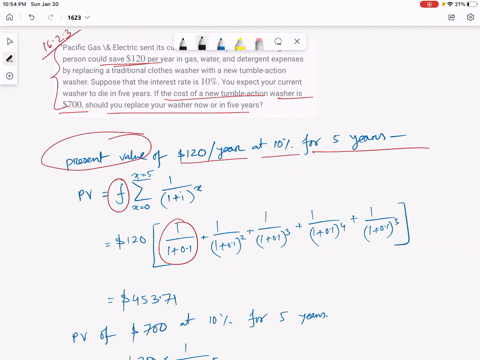 10:54 PM Sun Jan 30
1623
16.2.3
Pacific Gas \& Electric sent its cu
person could save $120 per year in gas, water, and detergent expenses
by replacing a traditional clothes washer with a new tumble-action
washer. Suppose that the interest rate is 10%. You expect your current
washer to die in five years. If the cost of a new tumble-action washer is
$700, should you replace your washer now or in five years?
present value of $120/year at 10% for 5 years —
PV = f ∑ x=5 x=0 1/(1+i)^x
= $120 [ 1/(1+0.1) + 1/(1+0.1)^2 + 1/(1+0.1)^3 + 1/(1+0.1)^4 + 1/(1+0.1)^5 ]
= $453.71
PV of $700 at 10% for 5 years.